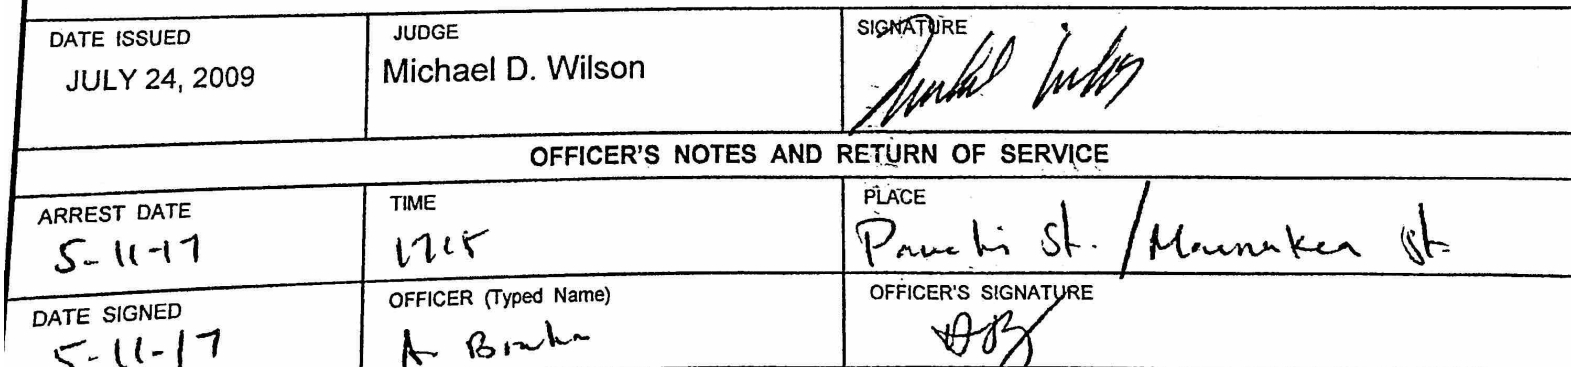 DATE ISSUED
JULY 24, 2009
JUDGE
Michael D. Wilson
SIGNATURE
OFFICER'S NOTES AND RETURN OF SERVICE
ARREST DATE
5-11-17
TIME
1715
PLACE
Pauahi St. / Maunakea St.
DATE SIGNED
5-11-17
OFFICER (Typed Name)
A
OFFICER'S SIGNATURE